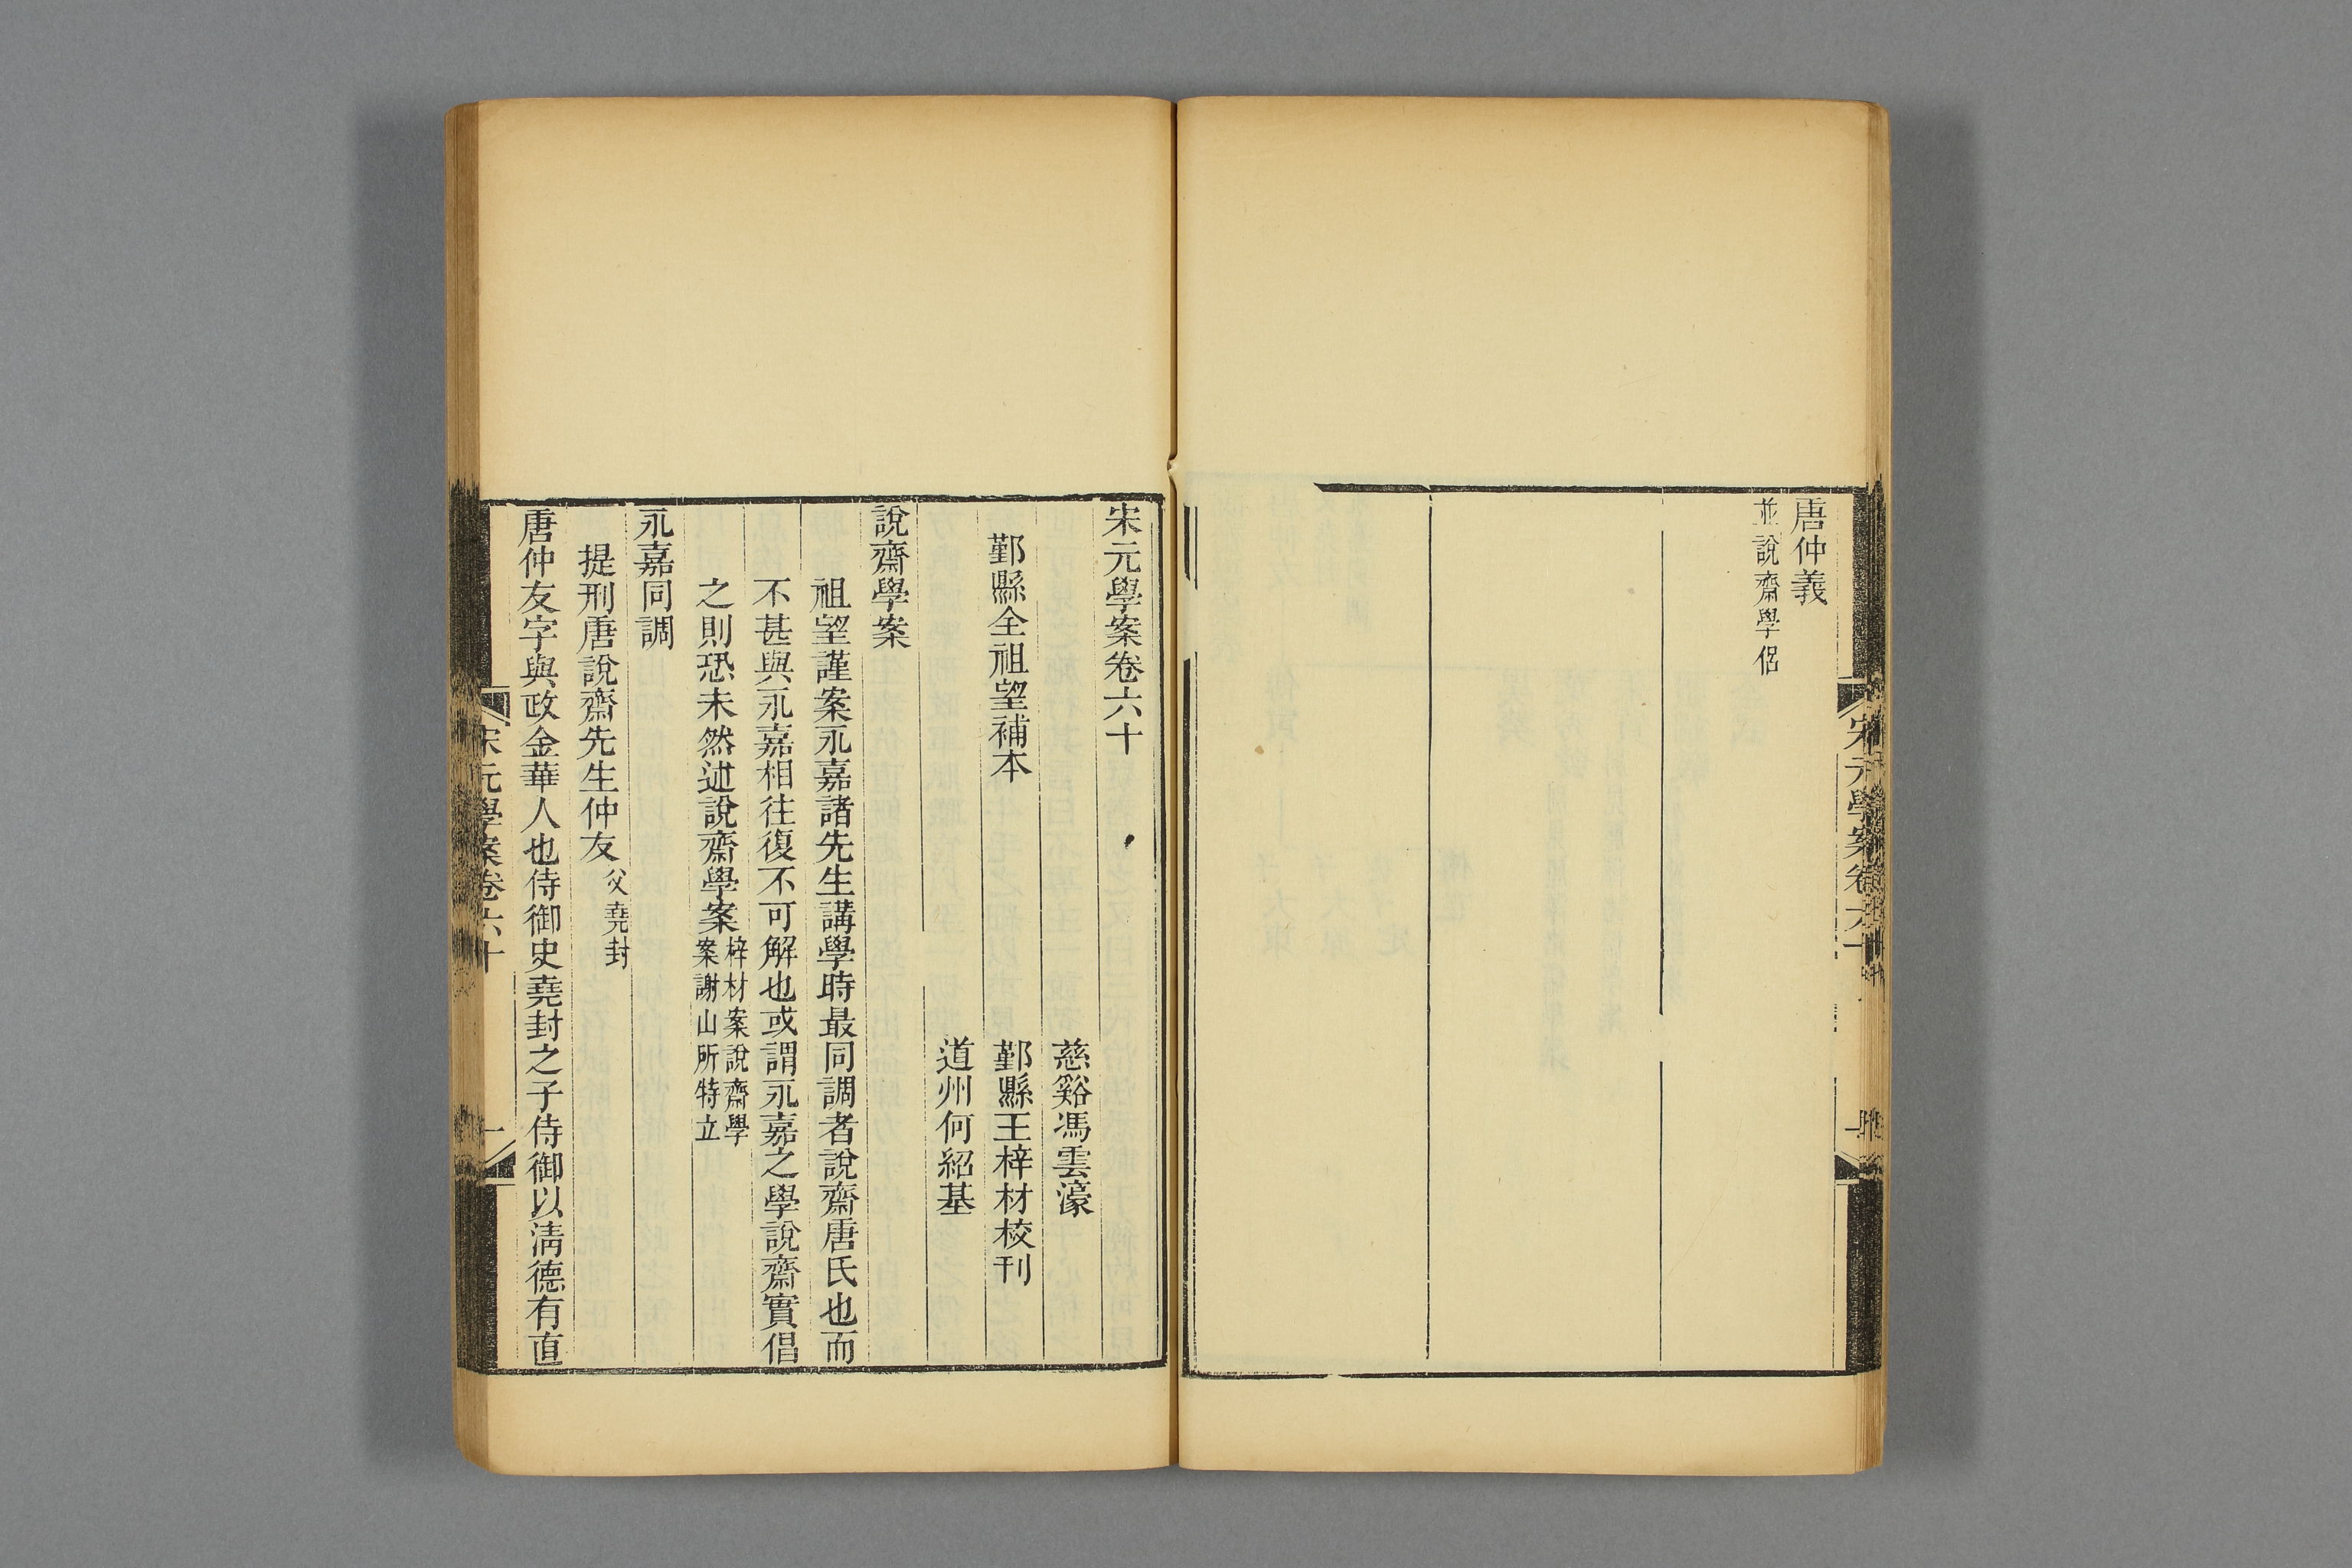 唐仲義
並說齋學侶
宋元學案卷六十
宋元學案卷六十
慈谿馮雲濠
鄞縣全祖望補本
鄞縣王梓材校刊
道州何紹基
說齋學案
祖望謹案永嘉諸先生講學時最同調者說齋唐氏也而
不甚與永嘉相往復不可解也或謂永嘉之學說齋實倡
之則恐未然述說齋學案
梓材案說齋學
案謝山所特立
永嘉同調
提刑唐說齋先生仲友
父堯封
唐仲友字與政金華人也侍御史堯封之子侍御以清德有直
宋元學案卷六十
一